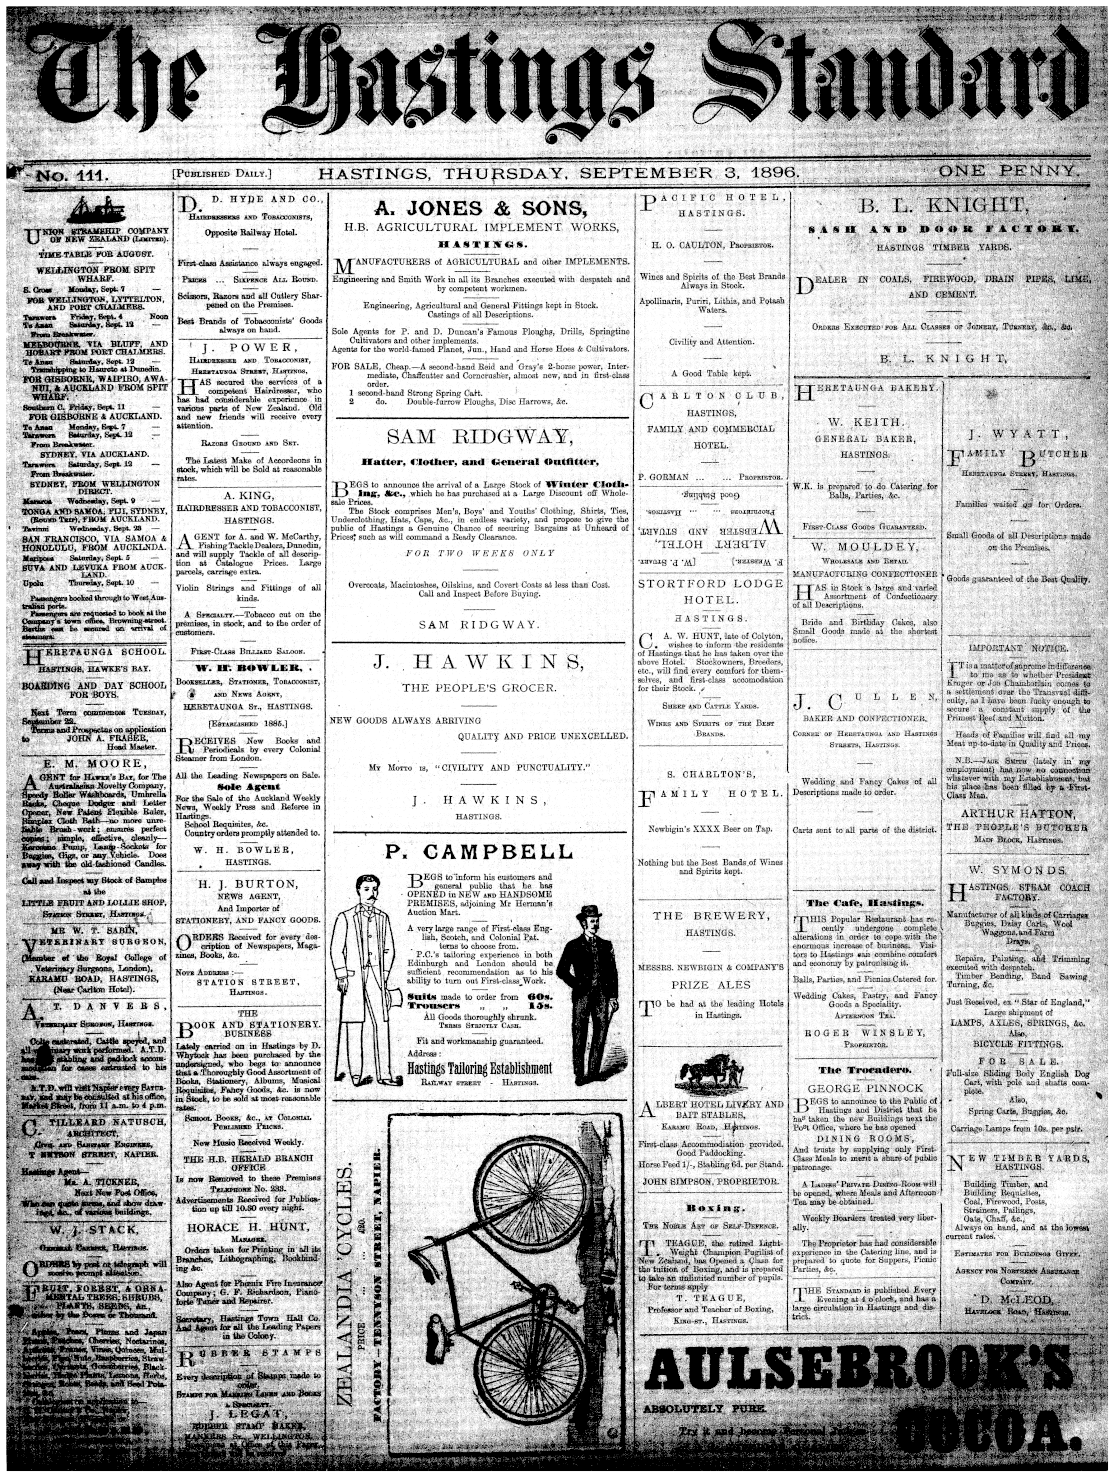 The Hastings Standard
No. 111.
[PUBLISHED DAILY.]
HASTINGS, THURSDAY, SEPTEMBER 3, 1896.
ONE PENNY.
UNION STEAMSHIP COMPANY
OF NEW ZEALAND (LIMITED).
TIME-TABLE FOR AUGUST.
WELLINGTON FROM SPIT
WHARF.
S. Cross Monday, Sept. 7 —
FOR WELLINGTON, LYTTELTON,
AND PORT CHALMERS.
Tarawera Friday, Sept. 4 Noon
Te Anau Saturday, Sept. 12 —
From Breakwater.
MELBOURNE, VIA BLUFF, AND
HOBART FROM PORT CHALMERS.
Te Anau Saturday, Sept. 12 —
Transhipping to Hauroto at Dunedin.
FOR GISBORNE, WAIPIRO, AWA-
NUI, & AUCKLAND FROM SPIT
WHARF.
Southern C. Friday, Sept. 11 —
FOR GISBORNE & AUCKLAND.
Te Anau Monday, Sept. 7 —
Tarawera Saturday, Sept. 12 —
From Breakwater.
SYDNEY, VIA AUCKLAND.
Tarawera Saturday, Sept. 12 —
From Breakwater.
SYDNEY, FROM WELLINGTON
DIRECT.
Mararoa Wednesday, Sept. 9 —
TONGA AND SAMOA, FIJI, SYDNEY,
(ROUND TRIP), FROM AUCKLAND.
Taviuni Wednesday, Sept. 23
SAN FRANCISCO, VIA SAMOA &
HONOLULU, FROM AUCKLNDA.
Mariposa Saturday, Sept. 5 —
SUVA AND LEVUKA FROM AUCK-
LAND.
Upolu Thursday, Sept. 10 —
Passengers booked through to West Aus-
tralian ports.
Passengers are requested to book at the
Company's town office, Browning-street.
Berths can be secured on arrival of
steamers.
HERETAUNGA SCHOOL.
HASTINGS, HAWKE'S BAY.
BOARDING AND DAY SCHOOL
FOR BOYS.
Next Term commences TUESDAY,
September 22.
Terms and Prospectus on application
to JOHN A. FRASER,
Head Master.
E. M. MOORE,
AGENT for HAWKE'S BAY, for The
Australasian Novelty Company,
Speedy Boiler Washboards, Umbrella
Racks, Cheque Dodger and Letter
Opener, New Patent Flexible Ruler,
Simplex Cloth Bath—no more unre-
liable Brush-work; ensures perfect
copies; simple, effective, cleanly—
Kerosene Pump, Lamp Sockets for
Buggies, Gigs, or any Vehicle. Does
away with the old-fashioned Candles.
Call and Inspect my Stock of Samples
at the
LITTLE FRUIT AND LOLLIE SHOP,
STATION STREET, HASTINGS.
MR W. T. SABIN,
VETERINARY SURGEON,
(Member of the Royal College of
Veterinary Surgeons, London),
KARAMU ROAD, HASTINGS,
(Near Carlton Hotel).
A. T. DANVERS,
VETERINARY SURGEON, HASTINGS.
Colts castrated, Cattle speyed, and
A.T.D. will visit Napier every SATUR-
DAY, and may be consulted at his office,
Market Street, from 11 a.m. to 4 p.m.
C. TILLEARD NATUSCH,
ARCHITECT,
CIVIL AND SANITARY ENGINEER,
TENNYSON STREET, NAPIER.
Hastings Agent—
MR. A. TICKNER,
Next New Post Office,
W. J. STACK,
GENERAL CARRIER, HASTINGS.
ORDERS by post or telegraph will
receive prompt attention.
FRUIT, FOREST, & ORNA-
MENTAL TREES, SHRUBS,
PLANTS, SEEDS, &c.,
D. D. HYDE AND CO.,
HAIRDRESSERS AND TOBACCONISTS,
Opposite Railway Hotel.
First-class Assistance always engaged.
PRICES ... SIXPENCE ALL ROUND.
Scissors, Razors and all Cutlery Shar-
pened on the Premises.
Best Brands of Tobacconists' Goods
always on hand.
J. POWER,
HAIRDRESSER AND TOBACCONIST,
HERETAUNGA STREET, HASTINGS,
HAS secured the services of a
competent Hairdresser, who
has had considerable experience in
various parts of New Zealand. Old
and new friends will receive every
attention.
RAZORS GROUND AND SET.
The Latest Make of Accordeons in
stock, which will be Sold at reasonable
rates.
A. KING,
HAIRDRESSER AND TOBACCONIST,
HASTINGS.
AGENT for A. and W. McCarthy,
Fishing Tackle Dealers, Dunedin,
and will supply Tackle of all descrip-
tion at Catalogue Prices. Large
parcels, carriage extra.
Violin Strings and Fittings of all
kinds.
A SPECIALTY.—Tobacco cut on the
premises, in stock, and to the order of
customers.
FIRST-CLASS BILLIARD SALOON.
W. H. BOWLER,
BOOKSELLER, STATIONER, TOBACCONIST,
AND NEWS AGENT,
HERETAUNGA ST., HASTINGS.
[ESTABLISHED 1885.]
RECEIVES New Books and
Periodicals by every Colonial
Steamer from London.
All the Leading Newspapers on Sale.
Sole Agent
For the Sale of the Auckland Weekly
News, Weekly Press and Referee in
Hastings.
School Requisites, &c.
Country orders promptly attended to.
W. H. BOWLER,
HASTINGS.
H. J. BURTON,
NEWS AGENT,
And Importer of
STATIONERY, AND FANCY GOODS.
ORDERS Received for every des-
cription of Newspapers, Maga-
zines, Books, &c.
NOTE ADDRESS:—
STATION STREET,
HASTINGS.
THE
BOOK AND STATIONERY.
BUSINESS
Lately carried on in Hastings by D.
Whytock has been purchased by the
undersigned, who begs to announce
that a Thoroughly Good Assortment of
Books, Stationery, Albums, Musical
Requisites, Fancy Goods, &c. is now
in Stock, to be sold at most reasonable
rates.
SCHOOL BOOKS, &C., AT COLONIAL
PUBLISHED PRICES.
New Music Received Weekly.
THE H.B. HERALD BRANCH
OFFICE
Is now Removed to these Premises
TELEPHONE NO. 233.
Advertisements Received for Publica-
tion up till 10.30 every night.
HORACE H. HUNT,
MANAGER.
Orders taken for Printing in all its
Branches, Lithographing, Bookbind-
ing &c.
Also Agent for Phœnix Fire Insurance
Company; G. F. Richardson, Piano-
forte Tuner and Repairer.
Secretary, Hastings Town Hall Co.
And Agent for all the Leading Papers
in the Colony.
RUBBER STAMPS
Every description of Stamps made to
order.
STAMPS FOR MARKING LINEN AND BOOKS
A SPECIALTY.
J. LEGAT,
RUBBER STAMP MAKER,
MANNERS ST., WELLINGTON.
A. JONES & SONS,
H.B. AGRICULTURAL IMPLEMENT WORKS,
HASTINGS.
MANUFACTURERS of AGRICULTURAL and other IMPLEMENTS.
Engineering and Smith Work in all its Branches executed with despatch and
by competent workmen.
Engineering, Agricultural and General Fittings kept in Stock.
Castings of all Descriptions.
Sole Agents for P. and D. Duncan's Famous Ploughs, Drills, Springtine
Cultivators and other implements.
Agents for the world-famed Planet, Jun., Hand and Horse Hoes & Cultivators.
FOR SALE, Cheap.—A second-hand Reid and Gray's 2-horse power, Inter-
mediate, Chaffcutter and Corncrusher, almost new, and in first-class
order.
1 second-hand Strong Spring Cart.
2 do. Double-furrow Ploughs, Disc Harrows, &c.
SAM RIDGWAY,
Hatter, Clother, and General Outfitter,
BEGS to announce the arrival of a Large Stock of Winter Cloth-
ing, &c., which he has purchased at a Large Discount off Whole-
sale Prices.
The Stock comprises Men's, Boys' and Youths' Clothing, Shirts, Ties,
Underclothing, Hats, Caps, &c., in endless variety, and propose to give the
public of Hastings a Genuine Chance of securing Bargains at Unheard of
Prices, such as will command a Ready Clearance.
FOR TWO WEEKS ONLY
Overcoats, Macintoshes, Oilskins, and Covert Coats at less than Cost.
Call and Inspect Before Buying.
SAM RIDGWAY.
J. HAWKINS,
THE PEOPLE'S GROCER.
NEW GOODS ALWAYS ARRIVING
QUALITY AND PRICE UNEXCELLED.
MY MOTTO IS, "CIVILITY AND PUNCTUALITY."
J. HAWKINS,
HASTINGS.
P. CAMPBELL
BEGS to inform his customers and
general public that he has
OPENED in NEW AND HANDSOME
PREMISES, adjoining Mr Herman's
Auction Mart.
A very large range of First-class Eng-
lish, Scotch, and Colonial Pat-
terns to choose from.
P.C.'s tailoring experience in both
Edinburgh and London should be
sufficient recommendation as to his
ability to turn out First-class Work.
Suits made to order from 60s.
Trousers „ „ 15s.
All Goods thoroughly shrunk.
TERMS STRICTLY CASH.
Fit and workmanship guaranteed.
Address:
Hastings Tailoring Establishment
RAILWAY STREET - HASTINGS.
ZEALANDIA CYCLES.
PRICE ... ... £20.
FACTORY—TENNYSON STREET, NAPIER.
PACIFIC HOTEL,
HASTINGS.
H. O. CAULTON, PROPRIETOR.
Wines and Spirits of the Best Brands
Always in Stock.
Apollinaris, Puriri, Lithia, and Potash
Waters.
Civility and Attention.
A Good Table kept.
CARLTON CLUB,
HASTINGS,
FAMILY AND COMMERCIAL
HOTEL.
P. GORMAN ... ... PROPRIETOR.
Good Stabling.
PROPRIETORS ... ... HASTINGS.
WEBSTER AND STUART,
ALBERT HOTEL.
F. WEBSTER.] [W. P. STUART.
STORTFORD LODGE
HOTEL.
HASTINGS.
C. A. W. HUNT, late of Colyton,
wishes to inform the residents
of Hastings that he has taken over the
above Hotel. Stockowners, Breeders,
etc., will find every comfort for them-
selves, and first-class accomodation
for their Stock.
SHEEP AND CATTLE YARDS.
WINES AND SPIRITS OF THE BEST
BRANDS.
S. CHARLTON'S,
FAMILY HOTEL.
Newbigin's XXXX Beer on Tap.
Nothing but the Best Bands of Wines
and Spirits kept.
THE BREWERY,
HASTINGS.
MESSES. NEWBIGIN & COMPANY'S
PRIZE ALES
TO be had at the leading Hotels
in Hastings.
ALBERT HOTEL LIVERY AND
BAIT STABLES,
KARAMU ROAD, HASTINGS.
First-class Accommodation provided.
Good Paddocking.
Horse Feed 1/-, Stabling 6d. per Stand.
JOHN SIMPSON, PROPRIETOR.
Boxing.
THE NOBLE ART OF SELF-DEFENCE.
T. TEAGUE, the retired Light-
Weight Champion Pugilist of
New Zealand, has Opened a Class for
the tuition of Boxing, and is prepared
to take an unlimited number of pupils.
For terms apply
T. TEAGUE,
Professor and Teacher of Boxing,
KING-ST., HASTINGS.
B. L. KNIGHT,
SASH AND DOOR FACTORY.
HASTINGS TIMBER YARDS.
DEALER IN COALS, FIREWOOD, DRAIN PIPES, LIME,
AND CEMENT.
ORDERS EXECUTED FOR ALL CLASSES OF JOINERY, TURNERY, &c., &c.
B. L. KNIGHT,
HERETAUNGA BAKERY.
W. KEITH.
GENERAL BAKER,
HASTINGS.
W.K. is prepared to do Catering for
Balls, Parties, &c.
FIRST-CLASS GOODS GUARANTEED.
W. MOULDEY,
WHOLESALE AND RETAIL
MANUFACTURING CONFECTIONER
HAS in Stock a large and varied
Assortment of Confectionery
of all Descriptions.
Bride and Birthday Cakes, also
Small Goods made at the shortest
notice.
J. CULLEN,
BAKER AND CONFECTIONER,
CORNER OF HERETAUNGA AND HASTINGS
STREETS, HASTINGS.
Wedding and Fancy Cakes of all
Descriptions made to order.
Carts sent to all parts of the district.
The Cafe, Hastings.
THIS Popular Restaurant has re-
cently undergone complete
alterations in order to cope with the
enormous increase of business. Visi-
tors to Hastings can combine comfort
and economy by patronising it.
Balls, Parties, and Picnics Catered for.
Wedding Cakes, Pastry, and Fancy
Goods a Speciality.
AFTERNOON TEA.
ROGER WINSLEY,
PROPRIETOR.
The Trocadero.
GEORGE PINNOCK
BEGS to announce to the Public of
Hastings and District that he
has taken the new Buildings next the
Post Office, where he has opened
DINING ROOMS,
And trusts by supplying only First-
Class Meals to merit a share of public
patronage.
A LADIES' PRIVATE DINING-ROOM will
be opened, where Meals and Afternoon
Tea may be obtained.
Weekly Boarders treated very liber-
ally.
The Proprietor has had considerable
experience in the Catering line, and is
prepared to quote for Suppers, Picnic
Parties, &c.
THE STANDARD is published Every
Evening at 4 o'clock, and has a
large circulation in Hastings and dis-
trict.
J. WYATT,
FAMILY BUTCHER
HERETAUNGA STREET, HASTINGS.
Families waited on for Orders.
Small Goods of all Descriptions made
on the Premises.
Goods guaranteed of the Best Quality.
IMPORTANT NOTICE.
IT is a matter of supreme indifference
to me as to whether President
Kruger or Joe Chamberlain comes to
a settlement over the Transvaal diffi-
culty, as I have been lucky enough to
secure a constant supply of the
Primest Beef and Mutton.
Heads of Families will find all my
Meat up-to-date in Quality and Prices.
N.B.—JACK SMITH (lately in my
employment) has now no connection
whatever with my Establishment, but
his place has been filled by a First-
Class Man.
ARTHUR HATTON,
THE PEOPLE'S BUTCHER
MAIN BLOCK, HASTINGS.
W. SYMONDS.
HASTINGS STEAM COACH
FACTORY.
Manufacturer of all kinds of Carriages
Buggies, Daisy Carts, Wool
Waggons, and Farm
Drays.
Repairs, Painting, and Trimming
executed with despatch.
Timber Bending, Band Sawing,
Turning, &c.
Just Received, ex "Star of England,"
Large shipment of
LAMPS, AXLES, SPRINGS, &c.
Also,
BICYCLE FITTINGS.
FOR SALE.
Full-size Sliding Body English Dog
Cart, with pole and shafts com-
plete.
Also,
Spring Carts, Buggies, &c.
Carriage Lamps from 10s. per pair.
NEW TIMBER YARDS,
HASTINGS.
Building Timber, and
Building Requisites,
Coal, Firewood, Posts,
Strainers, Palings,
Oats, Chaff, &c.,
Always on hand, and at the lowest
current rates.
ESTIMATES FOR BUILDINGS GIVEN.
AGENCY FOR NORTHERN ASSURANCE
COMPANY.
D. McLEOD,
HAVELOCK ROAD, HASTINGS.
AULSEBROOK'S
ABSOLUTELY PURE.
Try it and become
COCOA.